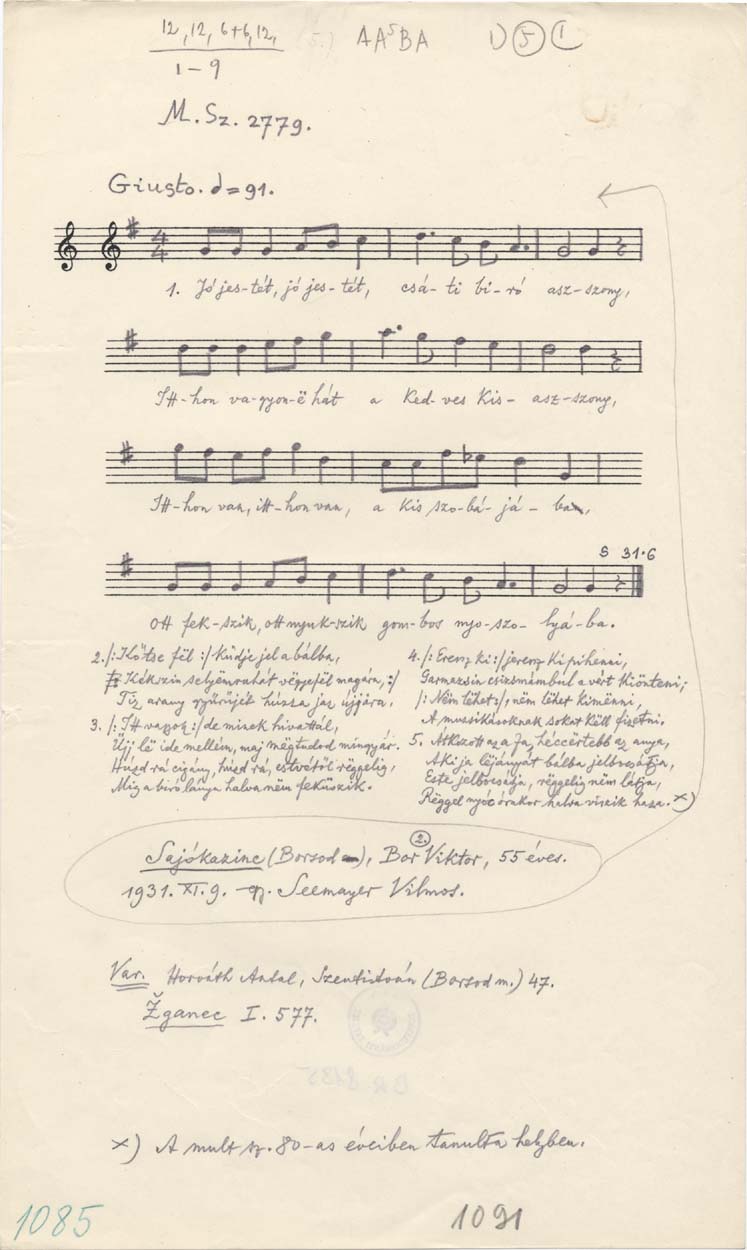 12, 12, 6+6, 12, 5.) AA⁵BA 1) (5) (1
1-9
M. Sz. 2779.
Giusto. d=91.
4 4
1. Jó jes-tét, jó jes-tét, csá-ti bi-ró asz-szony,
Itt-hon va-gyon-ë hát a Ked-ves Kis-asz-szony,
Itt-hon van, itt-hon van, a kis szo-bá-já-ba,
S 31.6
Ott fek-szik, ott nyuk-szik gom-bos nyo-szo-lyá-ba.
2. /: Költse fël :/ küdje jel a bálba,
Kékszin selyëmruhát vëgyefël magára, :/
Tiz arany gyűrűjét húzza jaz újjára.
3. /: Itt vagyok :/ de minek hivattál,
Üjj lë ide mellém, maj mëgtudod mingyár.
Húzd rá cigány, húzd rá, estvétől rëggelig,
Mig a biró lánya halva nem feküszik.
4. /: Eressz ki :/ jeressz ki pihenni,
Garmazsin csizsmámbul a vért kiönteni;
/: Nëm lëhet :/, nëm lëhet kimënni,
A mussikásoknak sokat këll fizetni.
5. Átkozott az a ja, héccërtebb az anya,
Aki ja léjányát bálba jelbocsátja,
Este jelbocsátja, rëggelig nëm látja,
Rëggel nyóc órakor halva viszik haza. x)
Sajókazinc (Borsod), Bor Viktor (2.), 55 éves.
1931. XI. 9. - gy. Seemayer Vilmos.
Var. Horváth Antal, Szentistván (Borsod m.) 47.
Žganec I. 577.
BR 8135
x) A mult sz. 80-as éveiben tanulta helyben.
1085
1091